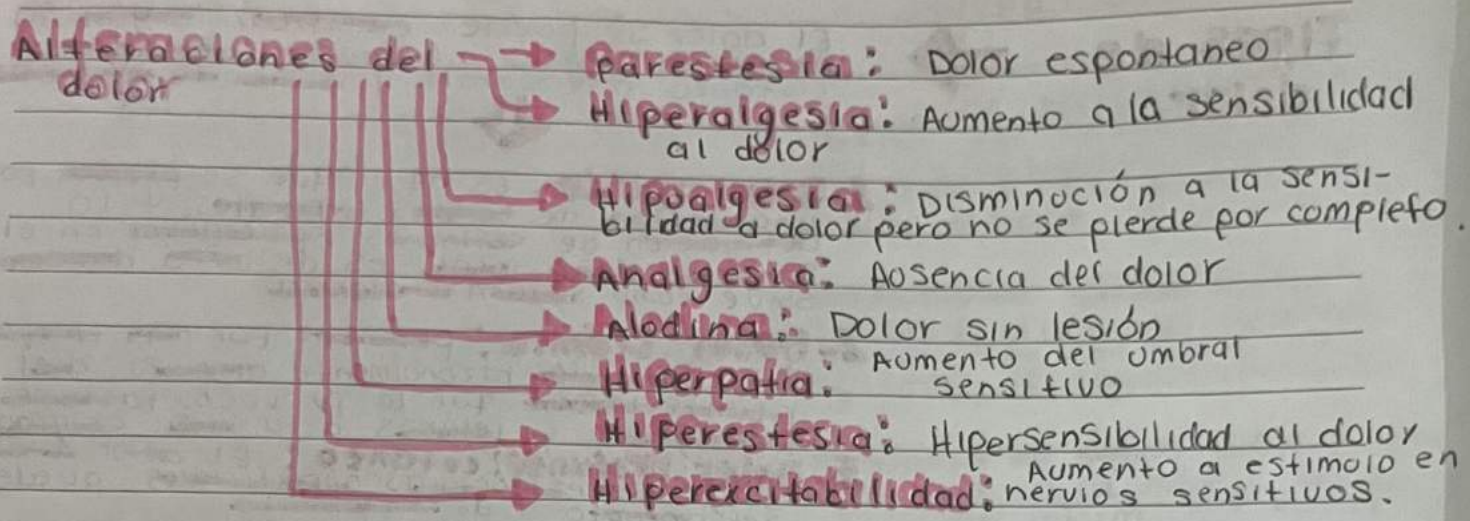 Alteraciones del
dolor
Parestesia: Dolor espontaneo
Hiperalgesia: Aumento a la sensibilidad
al dolor
Hipoalgesia: Disminución a la sensi-
bilidad a dolor pero no se pierde por completo.
Analgesia: Ausencia del dolor
Alodina: Dolor sin lesión
Hiperpatia: Aumento del umbral
sensitivo
Hiperestesia: Hipersensibilidad al dolor
Hiperexcitabilidad: Aumento a estimulo en
nervios sensitivos.